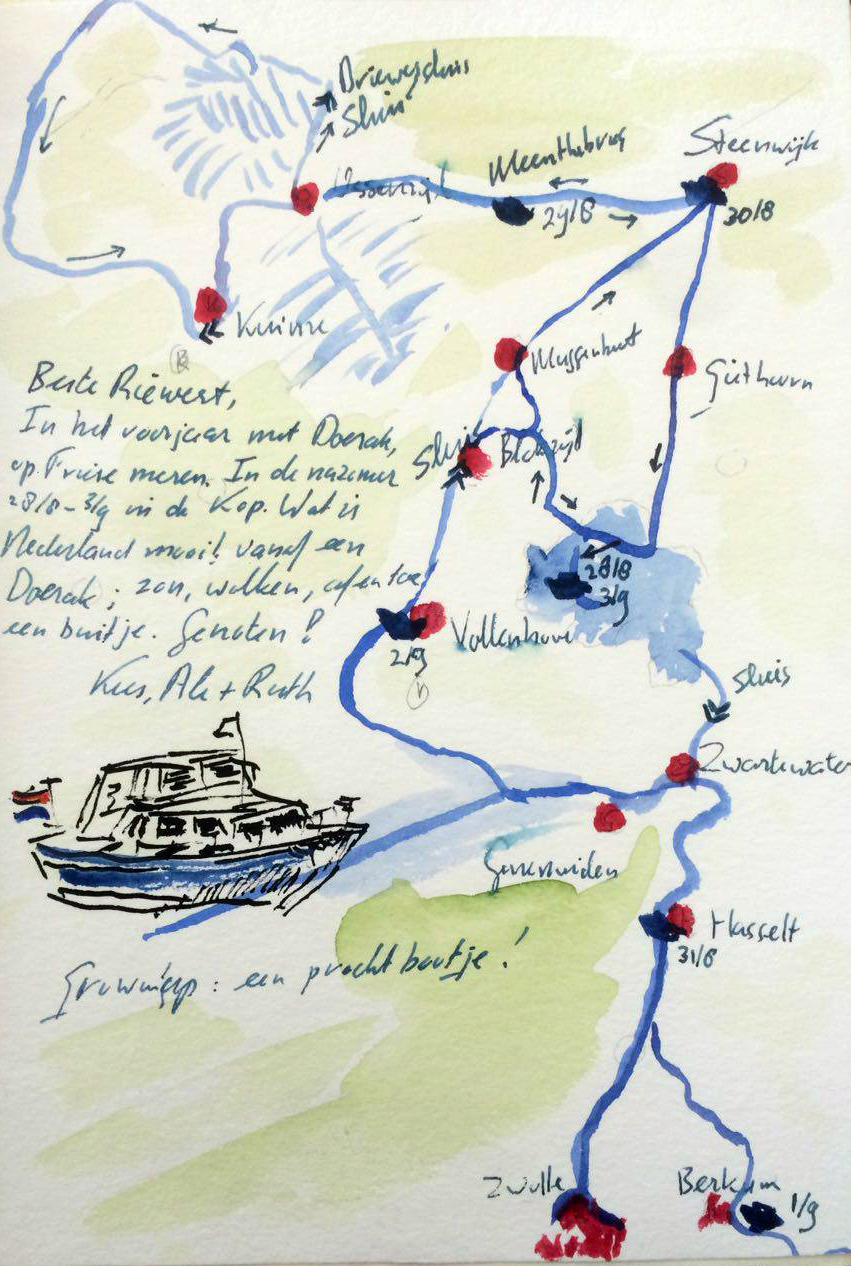 Driewegsluis
Sluis
Steenwijk
Meenthebrug
Ossenzijl
29/8
30/8
Kuinre
Muggenbeet
Giethoorn
Beste Riewert,
In het voorjaar met Doerak,
op Friese meren. In de nazomer
28/8 - 3/9 in de Kop. Wat is
Nederland mooi! vanaf een
Doerak; zon, wolken, af en toe
een buitje. Genoten!
Kees, Ale + Ruth
Sluis
Blokzijl
28/8
3/9
Vollenhove
2/9
sluis
Zwartewater
Genemuiden
Hasselt
31/8
: een pracht bootje!
Zwolle
Berkum
1/9